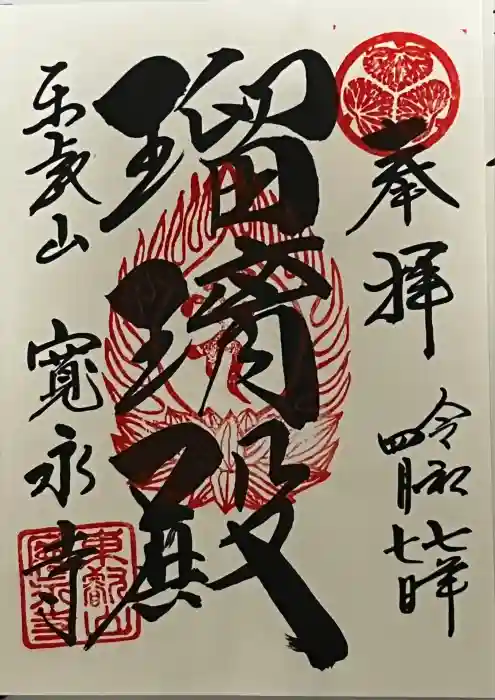 奉拝
令和七年
四月七日
瑠璃殿
東叡山
寛永寺